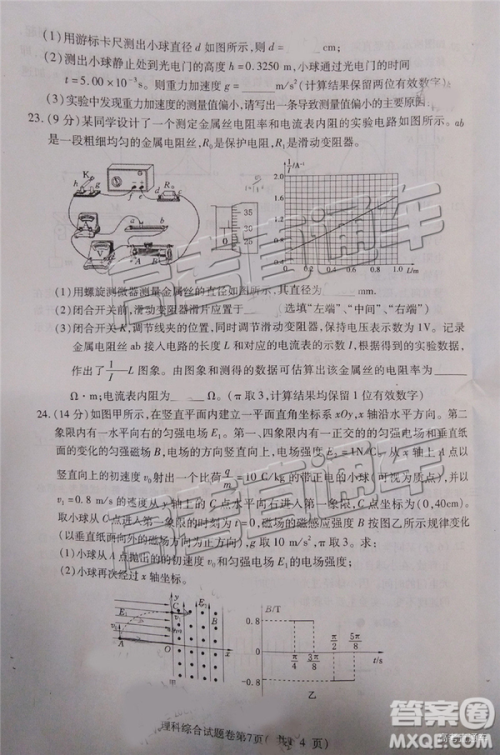 (1)用游标卡尺测出小球直径 d 如图所示,则 d = cm;
(2)测出小球静止处到光电门的高度 h=0.3250 m,小球通过光电门的时间
t=5.00×10⁻³s。则重力加速度 g= m/s²(计算结果保留两位有效数字)
(3)实验中发现重力加速度的测量值偏小,请写出一条导致测量值偏小的主要原因
23.(9 分)某同学设计了一个测定金属丝电阻率和电流表内阻的实验电路如图所示。ab
是一段粗细均匀的金属电阻丝,R₀是保护电阻,R₁是滑动变阻器。
(1)用螺旋测微器测量金属丝的直径如图所示,其直径为 mm
(2)闭合开关前,滑动变阻器滑片应置于 选填“左端”、“中间”、“右端”)
(3)闭合开关 K,调节线夹的位置,同时调节滑动变阻器,保持电压表示数为 1V。记录
金属电阻丝 ab 接入电路的长度 L 和对应的电流表的示数 I。根据所得的实验数据
作出了 1/I—L 图象。由图象和测得的数据可估算出该金属丝的电阻率约为
Ω·m;电流表内阻为 。(π取3,计算结果均保留1位有效数字)
24.(14 分)如图甲所示,在竖直平面内建立一平面直角坐标系 xOy,x 轴沿水平方向。第二
象限内有一水平向右的匀强电场 E₁。第一、四象限内有一正交的的匀强电场和垂直纸
面的交变的匀强磁场 B,电场的方向竖直向上,电场强度 E₂=1N/C。从 x 轴上 A 点以
竖直向上的初速度 v₀射出一个比荷 q/m=10 C/kg 的带正电的小球(可视为质点),并以
v₁=0.8 m/s 的速度从 y 轴上的 C 点水平向右进入第一象限,C 点坐标为(0,40cm)。
取小球从 C 点进入第一象限的时刻为 t=0,磁场的磁感应强度 B 按图乙所示规律变化
(以垂直纸面向外的磁场方向为正方向),g 取 10 m/s²,π取 3。求:
(1)小球从 A 点抛出的的初速度 v₀和匀强电场 E₁的电场强度;
(2)小球再次经过 x 轴坐标。
理科综合试题卷第7页( 4 页)